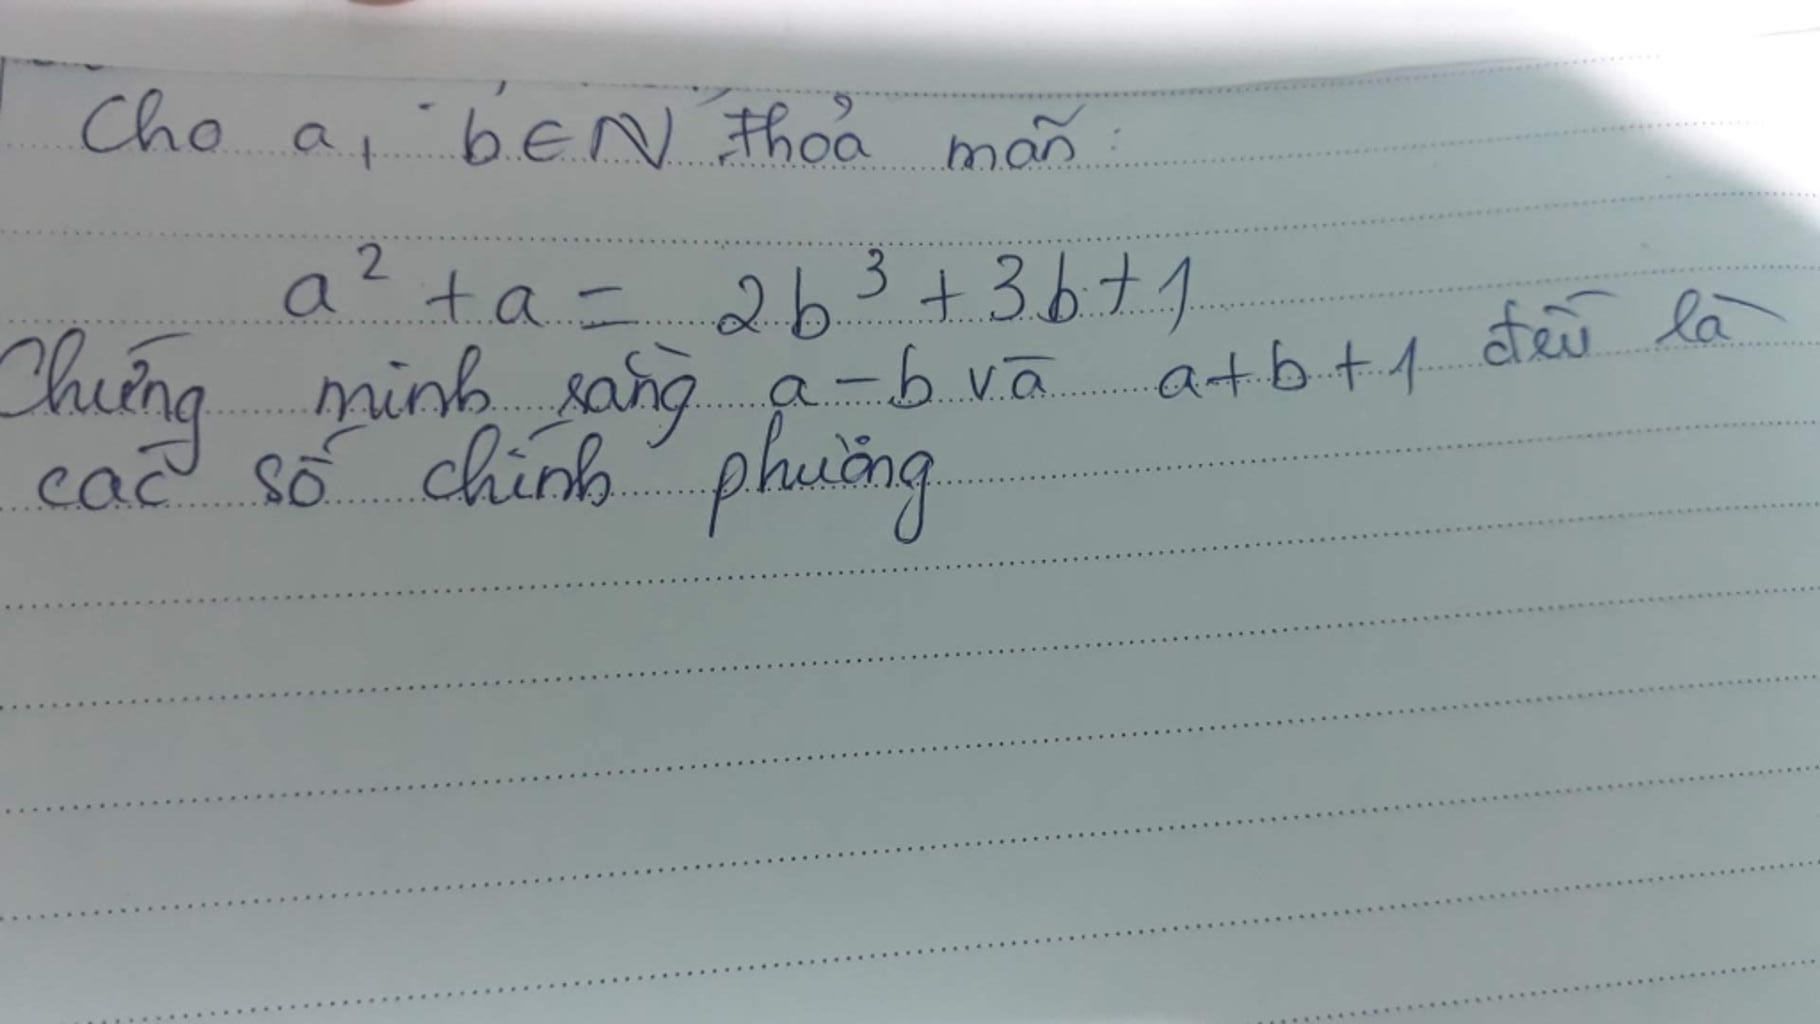 Cho a, b ∈ N thoả mãn:
a² + a = 2b³ + 3b + 1
Chứng minh rằng a - b và a + b + 1 đều là
các số chính phương